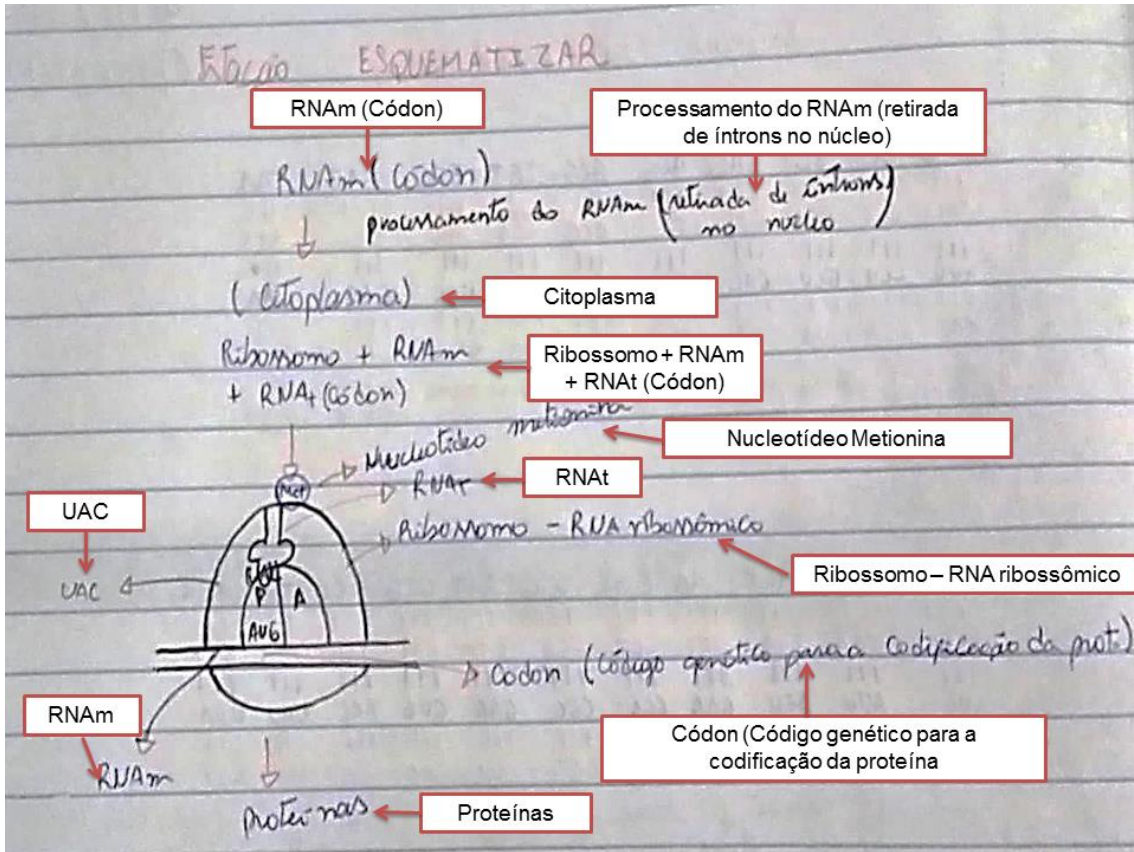 Estação ESQUEMATIZAR
RNAm (Códon)
Processamento do RNAm (retirada
de íntrons no núcleo)
RNAm (Códon)
processamento do RNAm (retirada de íntrons)
no nucleo
(Citoplasma)
Citoplasma
Ribossomo + RNAm
+ RNAt (Códon)
Ribossomo + RNAm
+ RNAt (Códon)
Nucleotídeo metionina
Nucleotídeo Metionina
Met
RNAt
RNAt
UAC
Ribossomo - RNA ribossômico
Ribossomo – RNA ribossômico
UAC
UAC
P A
AUG
Codon (Código genético para a codificação da prot.)
RNAm
Códon (Código genético para a
codificação da proteína
RNAm
Proteínas
Proteínas